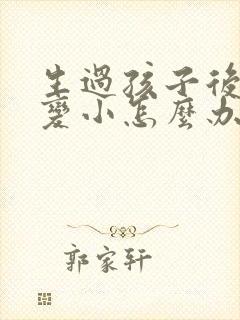 生過孩子後
變小怎麼办
郭家轩